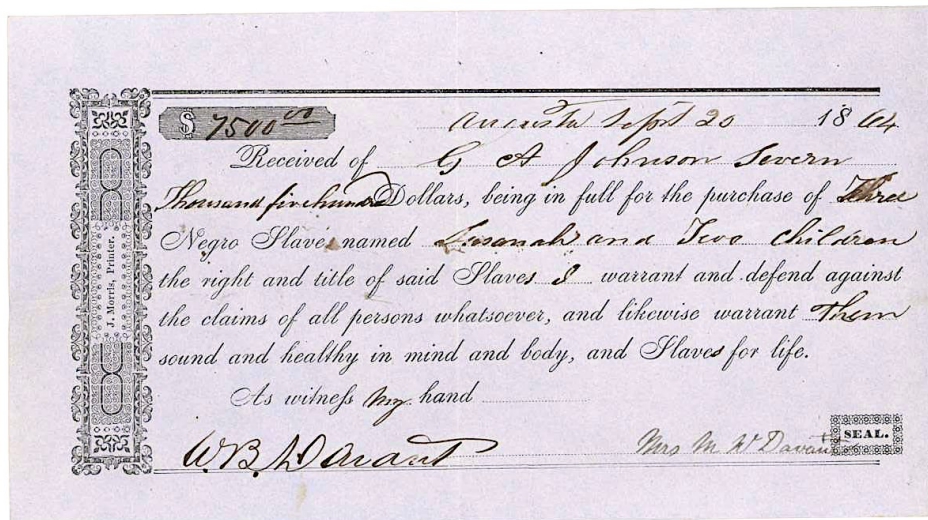 $ 7500 00
Augusta Sept 20 1864
Received of G A Johnson Severn
Thousand five hund Dollars, being in full for the purchase of Three
Negro Slaves named Susanah and Two Children
the right and title of said Slaves I warrant and defend against
the claims of all persons whatsoever, and likewise warrant Them
sound and healthy in mind and body, and Slaves for life.
As witness my hand
W. B. Davant
Mrs M W Davant
SEAL.
J. Morris, Printer.